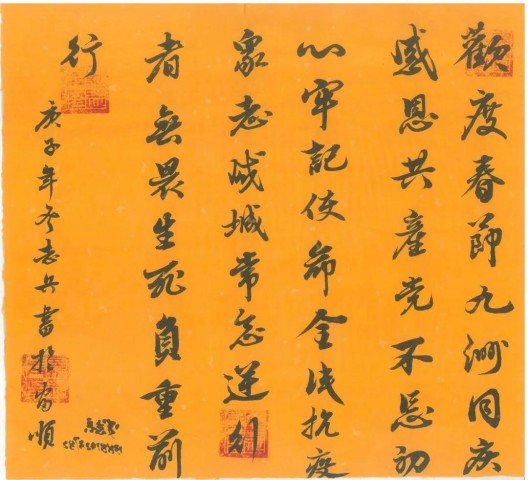 歡度春節九洲同庆
感恩共產党不忘初
心牢記使命全民抗疫
衆志成城常念逆行
者無畏生死負重前
行
庚子年冬志兵書於富順